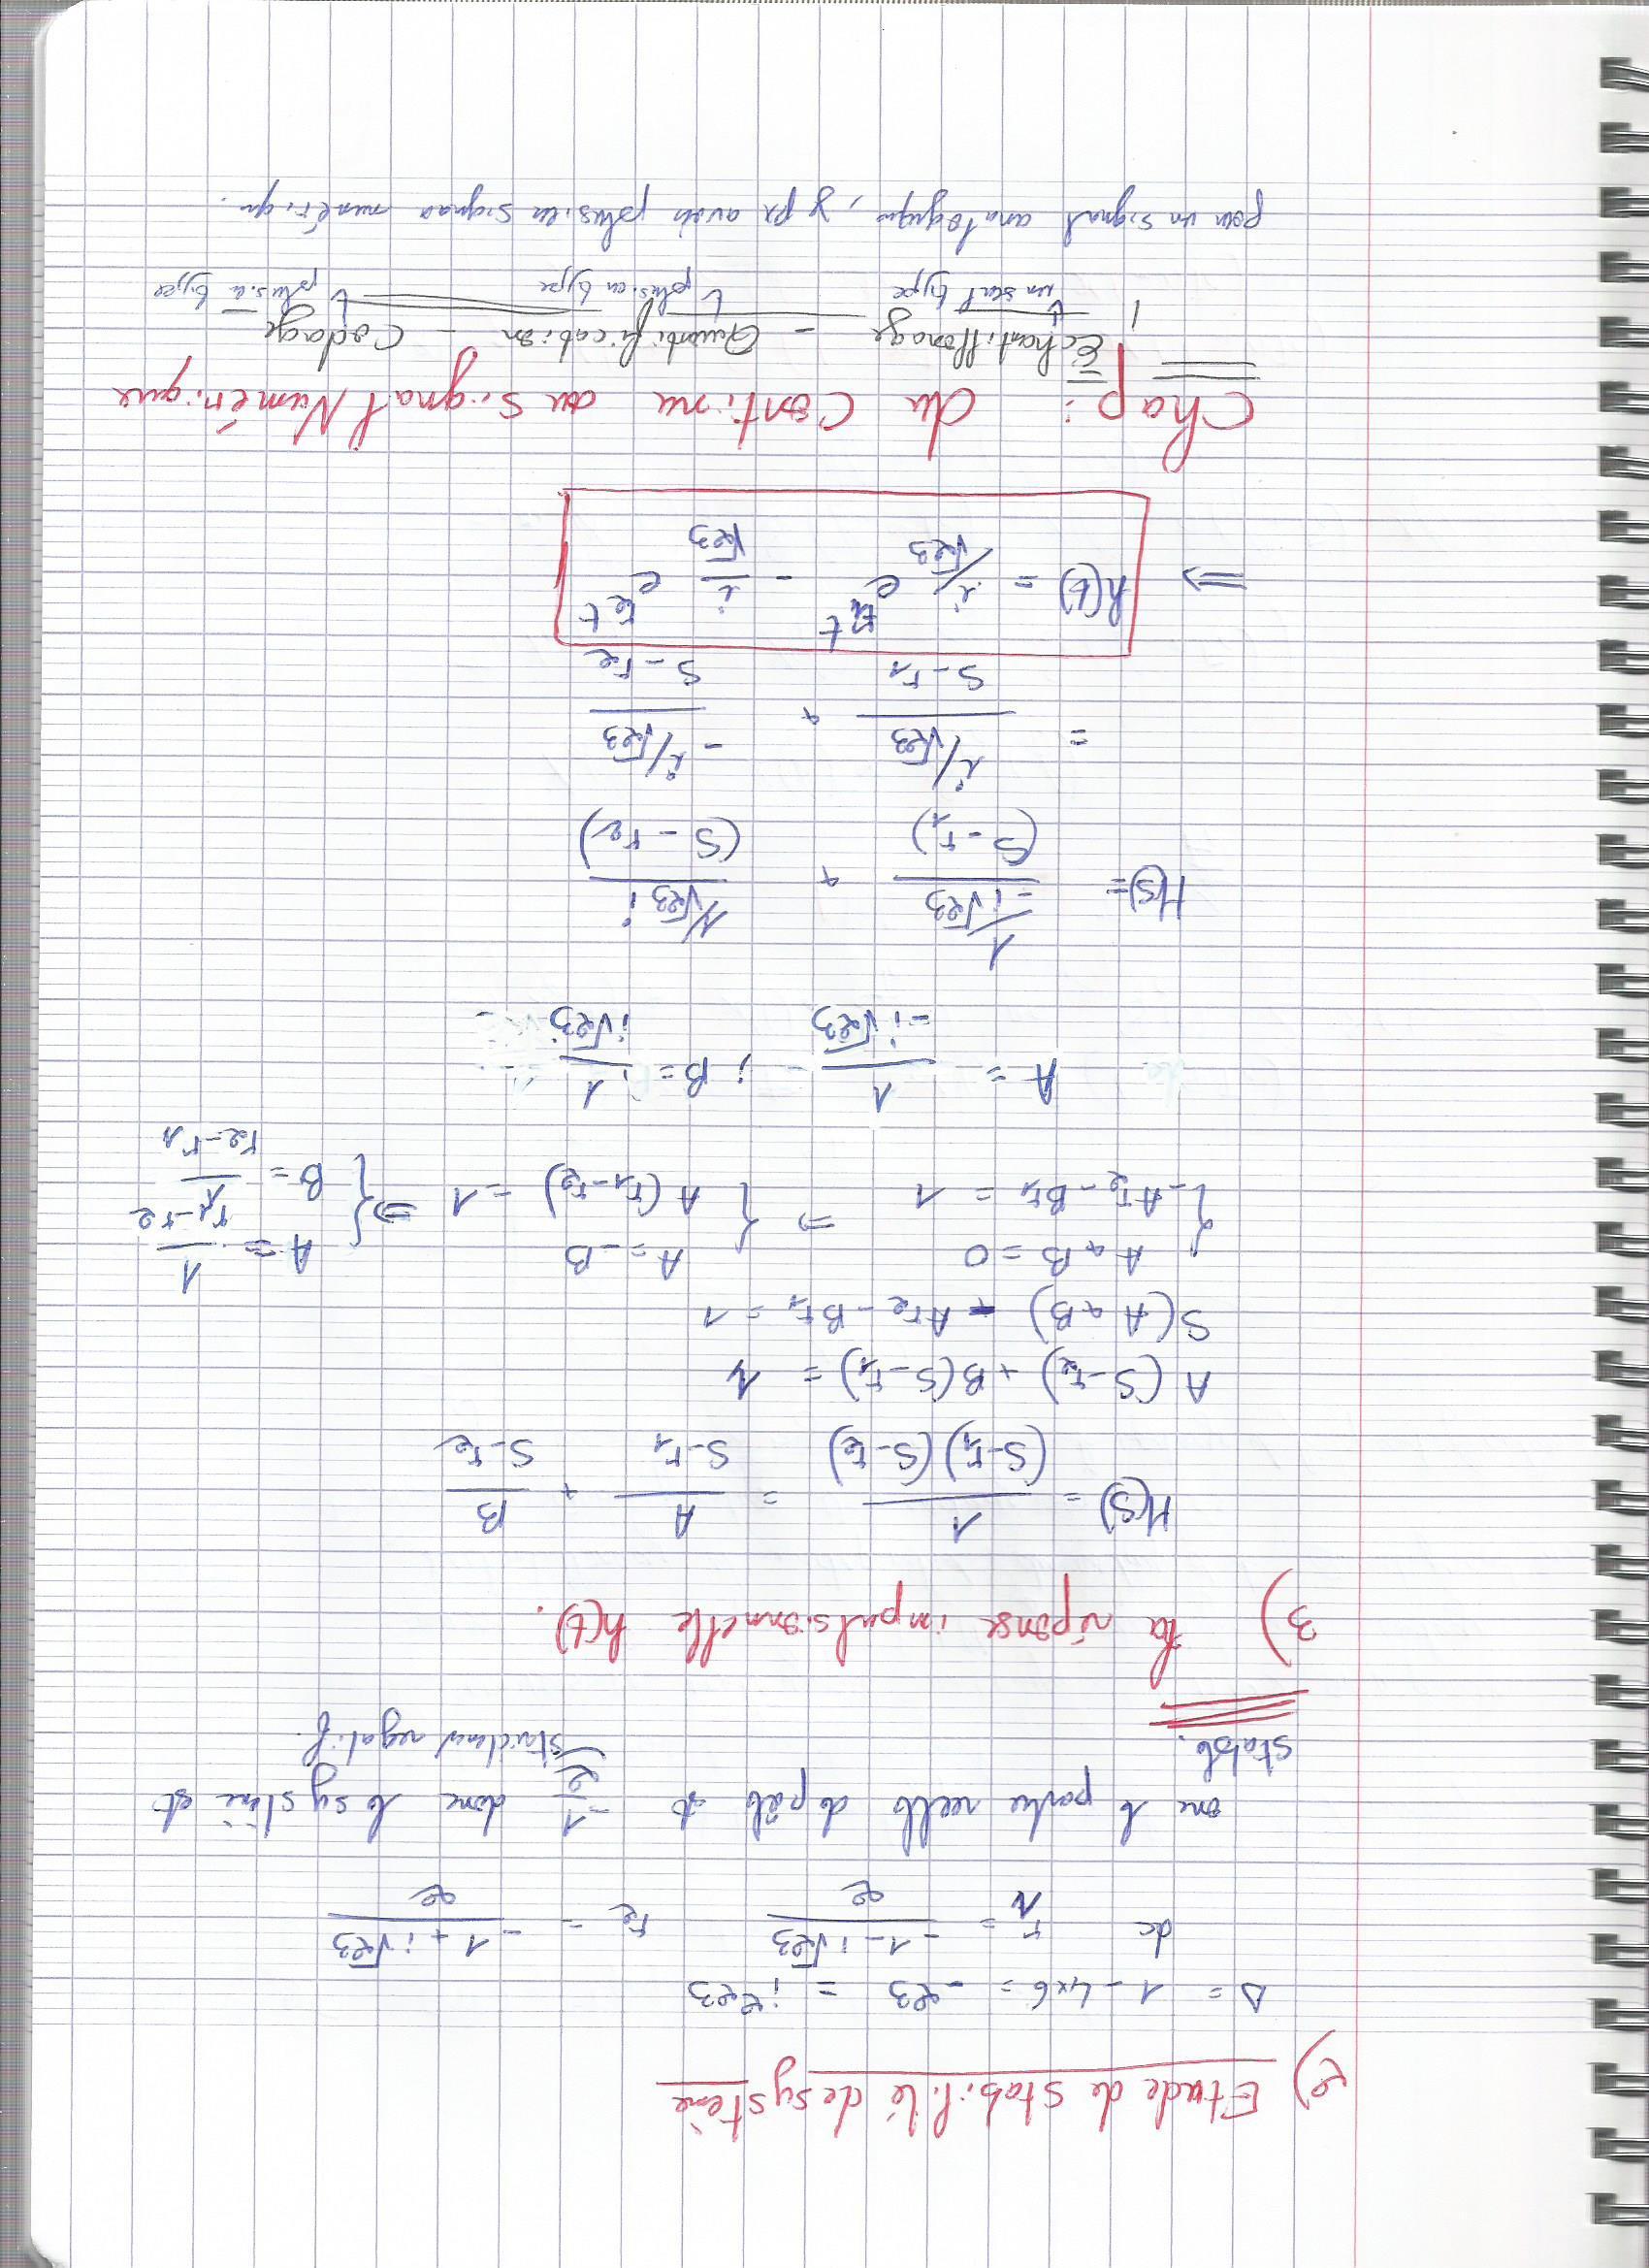 2) Etude de stabilité de système
Δ = 1 - 4x6 = -23 = i²23
dc r1 = (-1-i√23)/2 r2 = (-1+i√23)/2
one la partie reelle de pôle est -1/2 donc le système est
stable. strictement negatif.
3) la réponse impulsionnelle h(t).
H(S) = 1/((S-r1)(S-r2)) = A/(S-r1) + B/(S-r2)
A(S-r2) + B(S-r1) = 1
S(A+B) - Ar2 - Br1 = 1
{ A+B = 0 ⇒ { A = -B ⇒ { A = 1/(r1-r2)
{ -Ar2 - Br1 = 1 { A(r1-r2) = 1 { B = 1/(r2-r1)
A = 1/(-i√23) ; B = 1/(i√23)
H(S) = (1/-i√23)/(S-r1) + (1/√23 i)/(S-r2)
= (i/√23)/(S-r1) + (-i/√23)/(S-r2)
⇒ h(t) = i/√23 e^(r1 t) - i/√23 e^(r2 t)
Chap : du Continu au Signal Numérique
Echantillonage - Quantification - Codage
un seul type plusieu type plusieu type
pour un signal analogique, y px avoir plusieu signao numériqu.